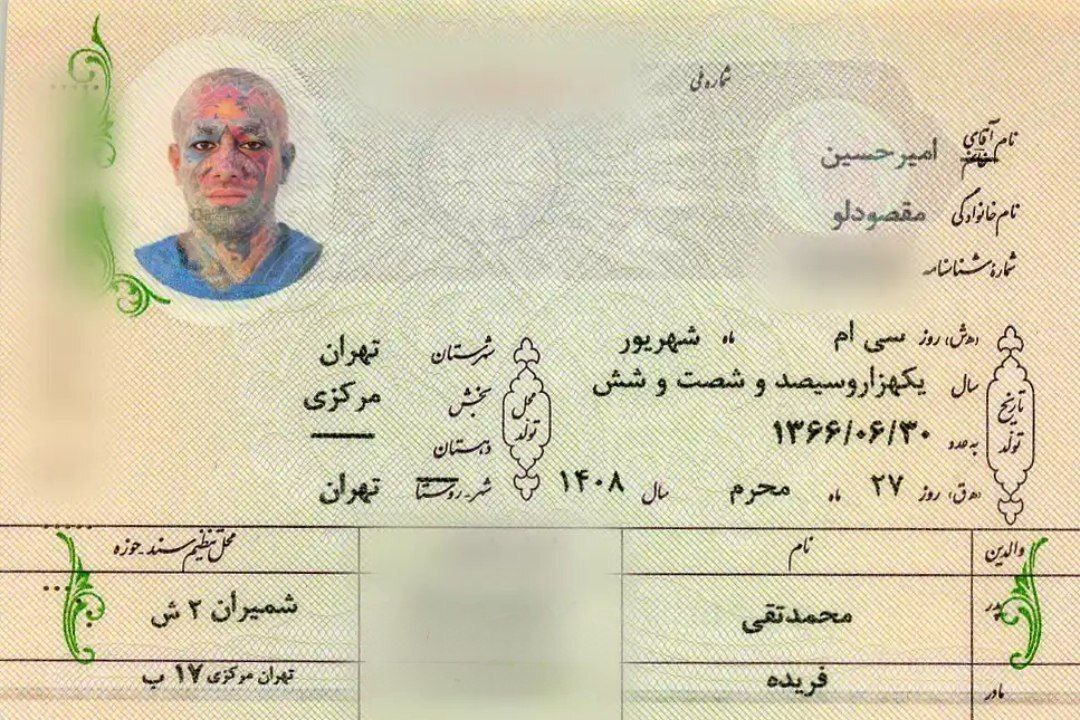 شماره ملی
نام آقای خانم امیرحسین
نام خانوادگی مقصودلو
شمارهٔ شناسنامه
تاریخ تولد
(ه‍.ش) روز سی ام ماه شهریور
سال یکهزاروسیصد و شصت و شش
به عدد ۱۳۶۶/۰۶/۳۰
(ه‍.ق) روز ۲۷ ماه محرم سال ۱۴۰۸
محل تولد
شهرستان تهران
بخش مرکزی
دهستان ــــــ
شهر-روستا تهران
والدین نام محل تنظیم سند-حوزه
پدر محمدتقی شمیران ۲ ش
مادر فریده تهران مرکزی ۱۷ ب